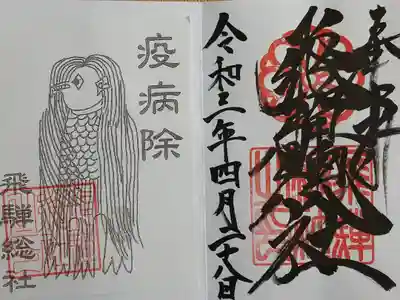 奉拝
飛騨総社
令和二年四月二十八日
疫病除
飛騨総社